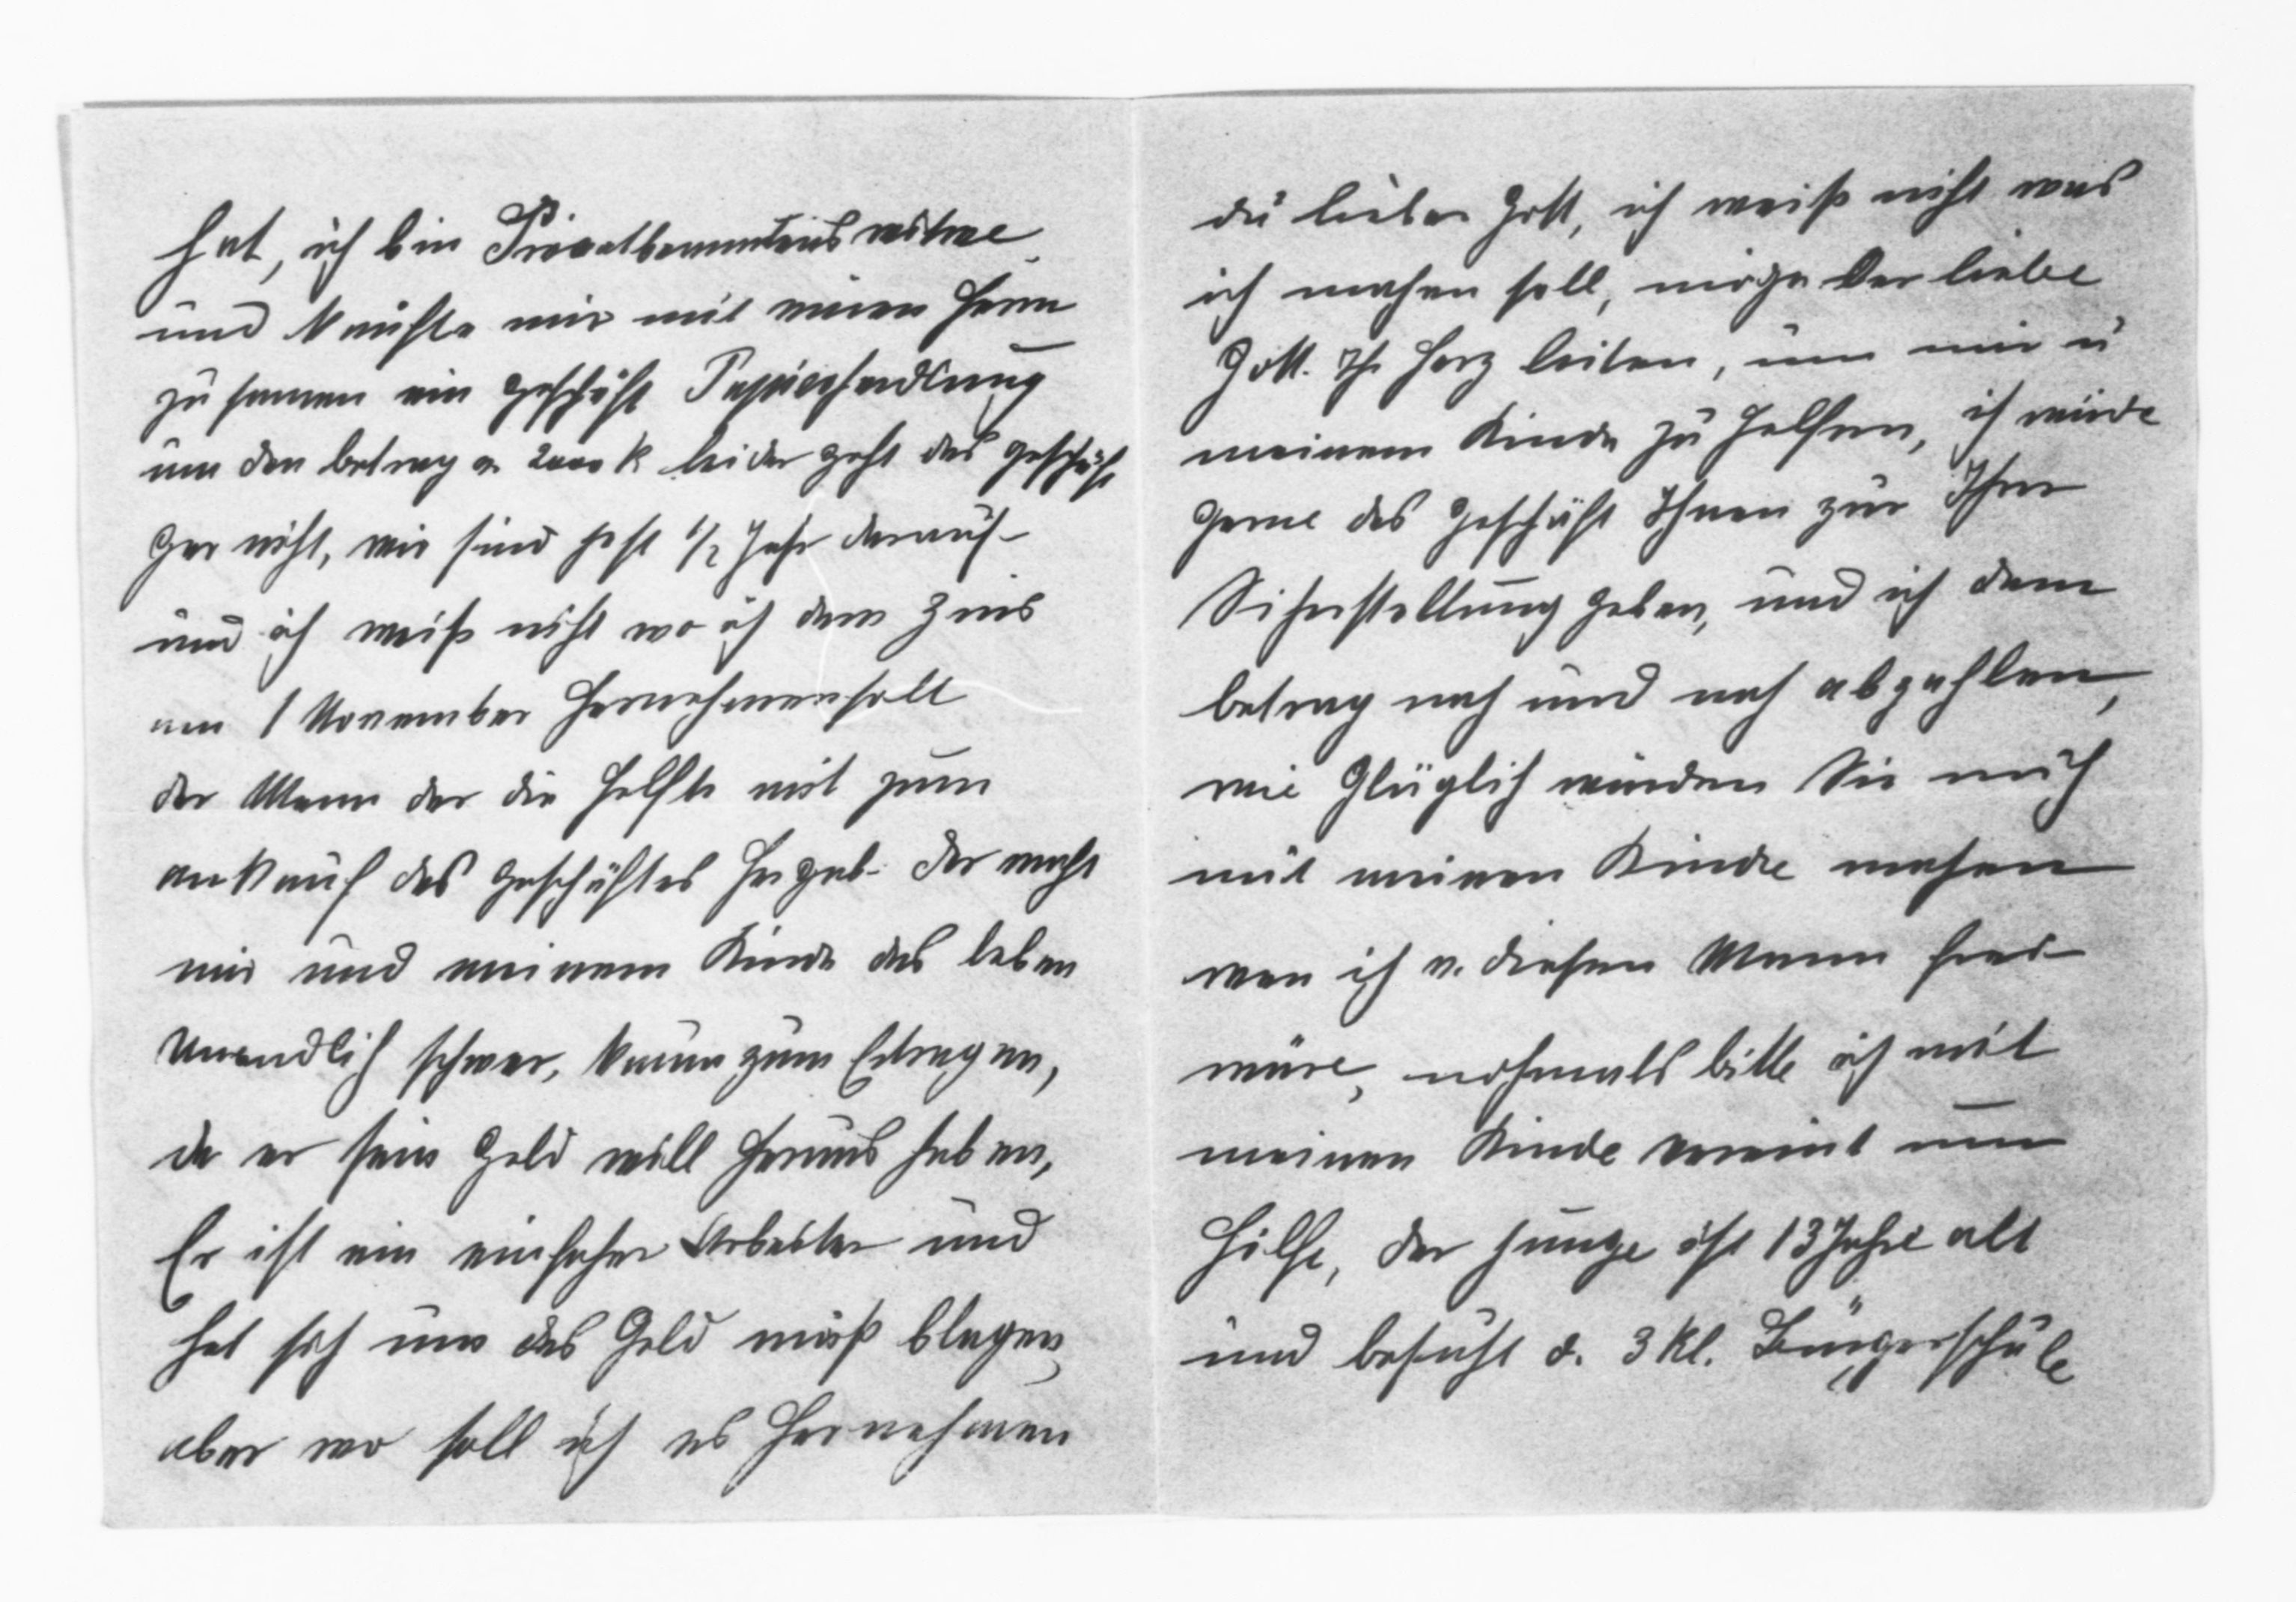 hat, ich bin Privatbeammtenswitwe
und kaufte mir mit einen Herrn
zu samen ein geschäft Papierhandlung
um den betrag v. 2000 K leider geht das geschäft
gar nicht, wir sind jetzt 1/2 Jahr darauf
und ich weiß nicht wo ich dem Zins
am 1 November hernehmen soll
der Mann der die Helfte mit zum
ankauf des geschäftes hergab der macht
mir und meinem Kinde das leben
unendlich schwer, kaum zum Ertragen,
da er sein Geld will heraus haben,
Er ist ein einfacher Arbeiter und
hat sich um das Geld müß blagen,
aber wo soll ich es hernehmen
du lieber Gott, ich weiß nicht was
ich machen soll, möge der liebe
Gott. Ihr Herz leiten, um mir u
meinem Kinde zu helfen, ich würde
gerne das geschäft Ihnen zur Ihrer
Sicherstellung geben, und ich dem
betrag nach und nach abzahlen,
wie Glüglich würden Sie mich
mit meinen Kinde machen
wen ich v. diesen Mann frei
wäre, nochmals bitte ich mit
meinen Kinde vereint um
Hilfe, der junge ist 13 Jahre alt
und besucht d. 3 Kl. Bürgerschule